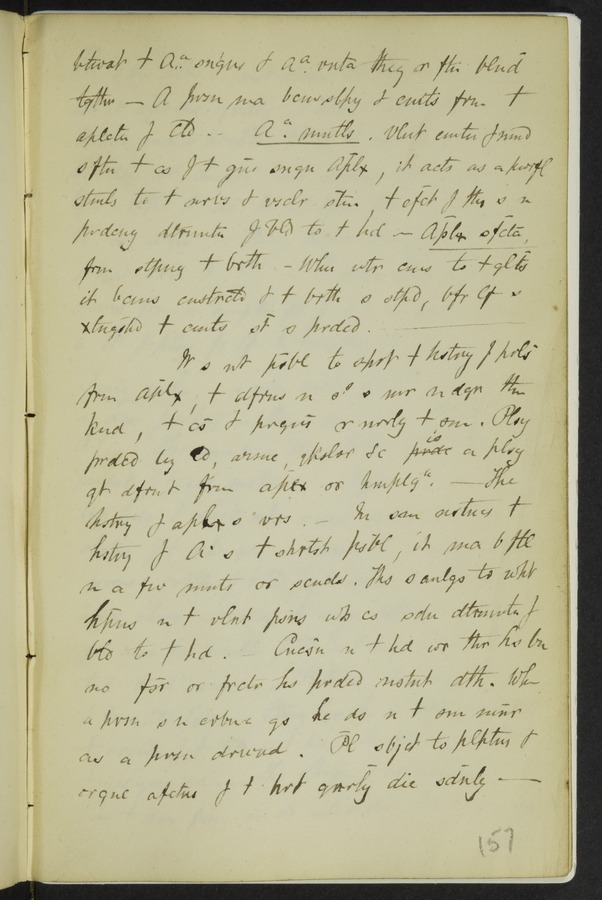 btwat + Aª sngus & aª vnta they or ftn blend
tgthr — A prsn ma bcm slpy & cmts frm +
aplcta f cld -- Aª mntls. Vlnt emtn f mnd
s ftn + cs f + gus sngn Aplx, it acts as a pwrfl
stmls to + nrvs & vsclr stm + efct f ths s n
prdcng dtrmntn f bld to + hd — Aplx sfcta,
frm stpng + brth - Whn wtr cms to + glts
it bcms cnstrctd & + brth s stpd, bfr lf s
xtngshd + cmts st s prdcd.
It s nt psbl to sprt + hstry f prls
frm aplx, + dfrns n sº s mr n dgr thn
knd, + cs & prgns r nrly + sm. Plsy
prdcd by ld, arsnc, glslar &c is a plsy
qt dfrnt frm aplx or hmplgª. — The
hstry f aplx s vrs. — In sm nstncs +
hstry f Aª s + shrtst psbl, it ma b ftl
n a fw mnts or scnds. Ths s anlgs to wht
hpns n + vlnt psns wh cs sdn dtrmntn f
bld to + hd. — Cncsn n + hd wr thr hs bn
no fsr or frctr hs prdcd nstnt dth. Whn
a prsn s n crbnc gs he ds n + sm mnr
as a prsn drwnd. Pl sbjct to plptns &
orgnc afctns f + hrt gnrly die sdnly —
157